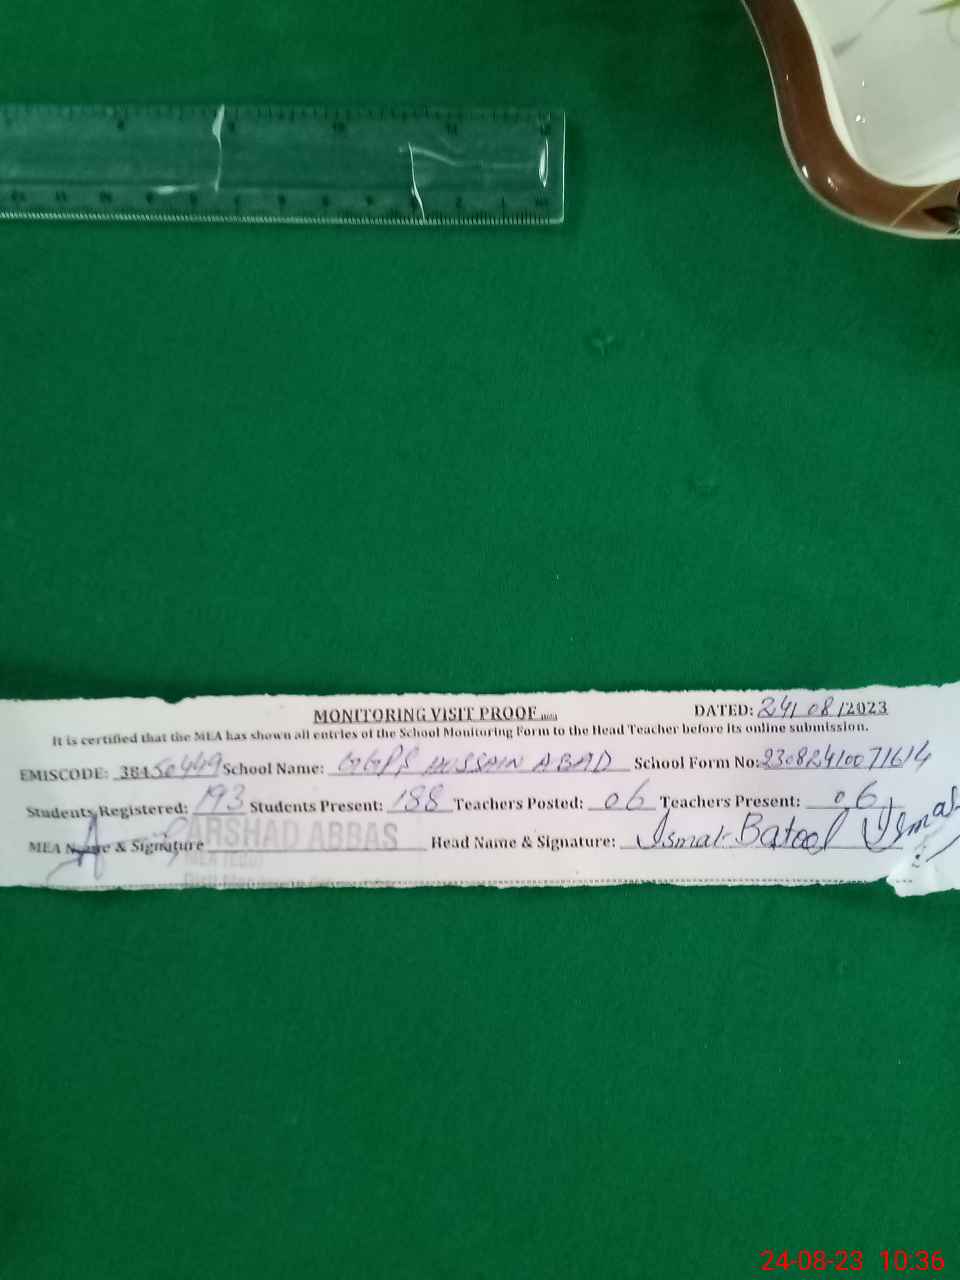 MONITORING VISIT PROOF DATED: 24/08/2023
It is certified that the MEA has shown all entries of the School Monitoring Form to the Head Teacher before its online submission.
EMISCODE: 38450449 School Name: GGPS HUSSAIN ABAD School Form No: 23082410071614
Students Registered: 193 Students Present: 188 Teachers Posted: 06 Teachers Present: 06
MEA Name & Signature ARSHAD ABBAS Head Name & Signature: Ismat Batool Ismat
24-08-23 10:36